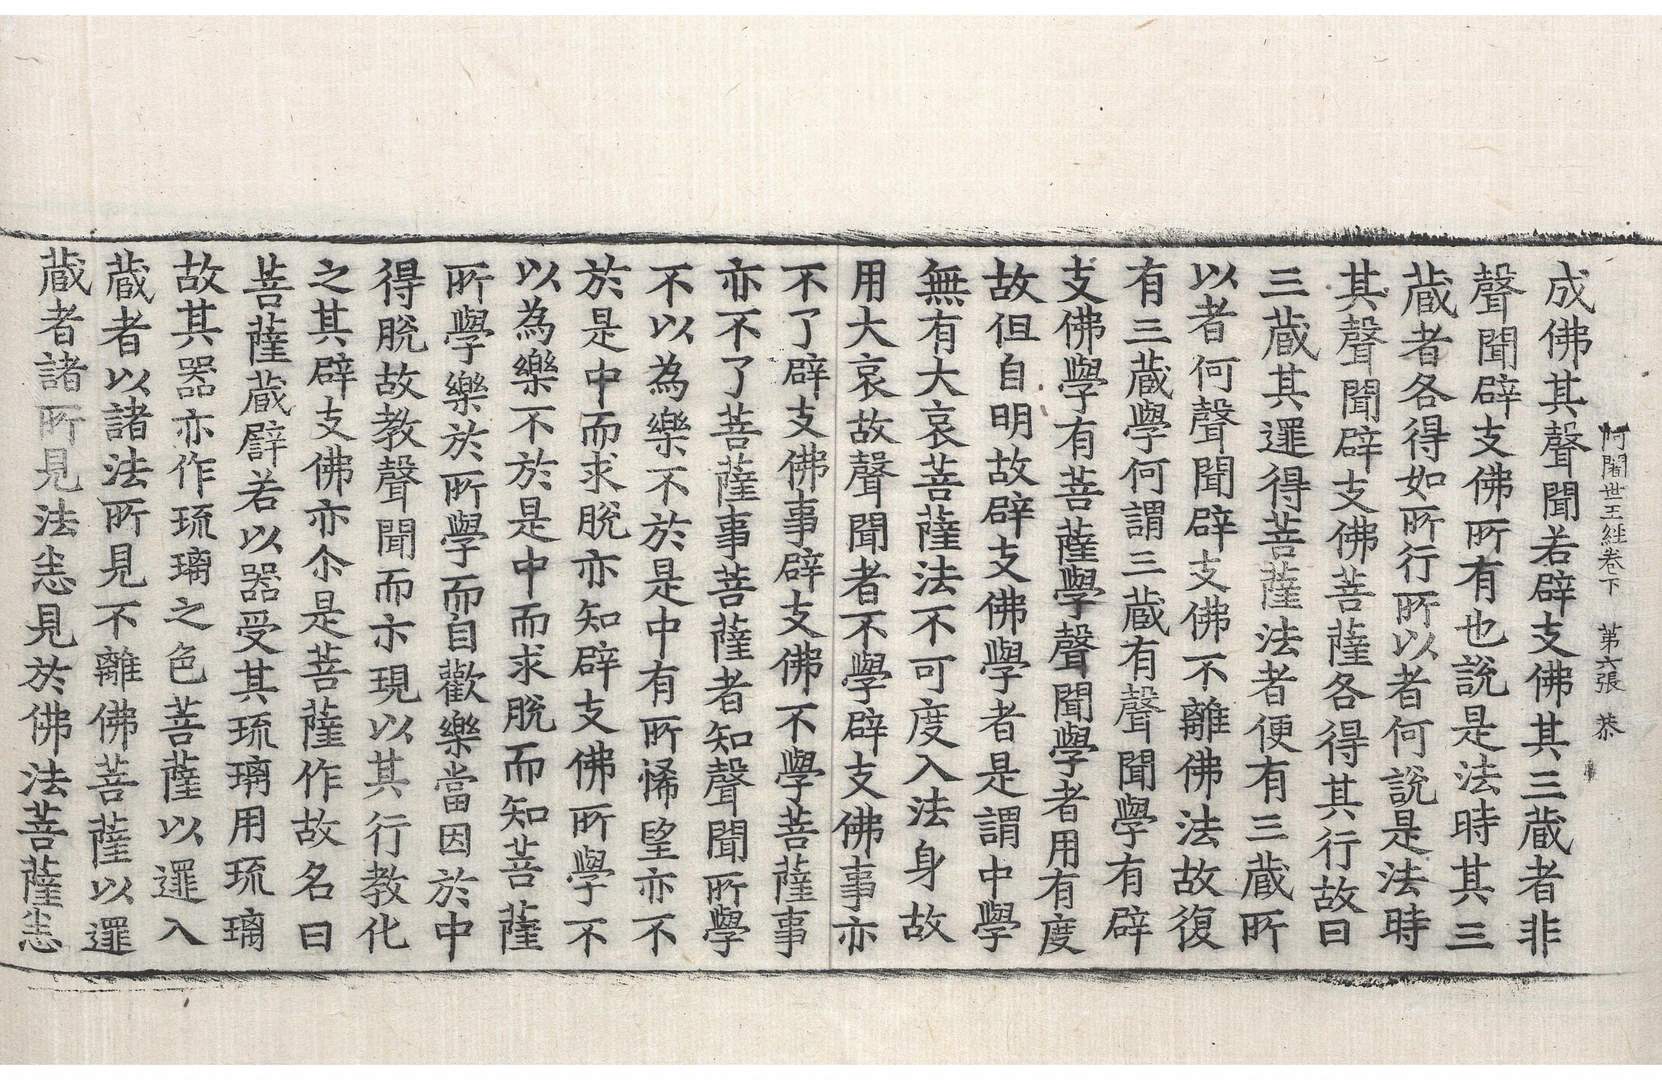 阿闍世王經卷下　第六張　恭
成佛其聲聞若辟支佛其三藏者非
聲聞辟支佛所有也說是法時其三
藏者各得如所行所以者何說是法時
其聲聞辟支佛菩薩各得其行故曰
三藏其邏得菩薩法者便有三藏所
以者何聲聞辟支佛不離佛法故復
有三藏學何謂三藏有聲聞學有辟
支佛學有菩薩學聲聞學者用有度
故但自明故辟支佛學者是謂中學
無有大哀菩薩法不可度入法身故
用大哀故聲聞者不學辟支佛事亦
不了辟支佛事辟支佛不學菩薩事
亦不了菩薩事菩薩者知聲聞所學
不以為樂不於是中有所悕望亦不
於是中而求脫亦知辟支佛所學不
以為樂不於是中而求脫而知菩薩
所學樂於所學而自歡樂當因於中
得脫故教聲聞而亦現以其行教化
之其辟支佛亦尒是菩薩作故名曰
菩薩藏譬若以器受其琉璃用琉璃
故其器亦作琉璃之色菩薩以邏入
藏者以諸法所見不離佛菩薩以邏
藏者諸所見法悉見於佛法菩薩悉